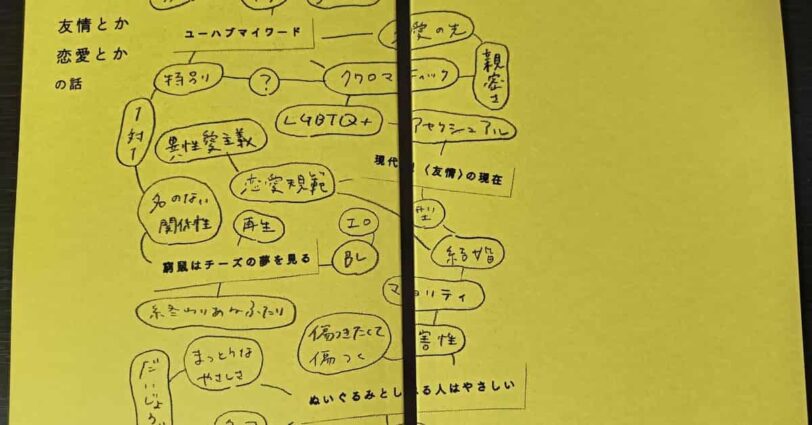 友情とか
恋愛とか
の話
ユーハブマイワード
愛の先
特別
?
クワロマ
ティック
親密さ
LGBTQ+
アセクシュアル
1対1
異性愛主義
現代
〈友情〉の現在
恋愛規範
名のない
関係性
再生
IO
BL
結婚
窮鼠はチーズの夢を見る
リティ
終わりあるふたり
傷つきたくて
傷つく
害性
まっとうな
やさしさ
だいじょう
ぬいぐるみとし
る人はやさしい